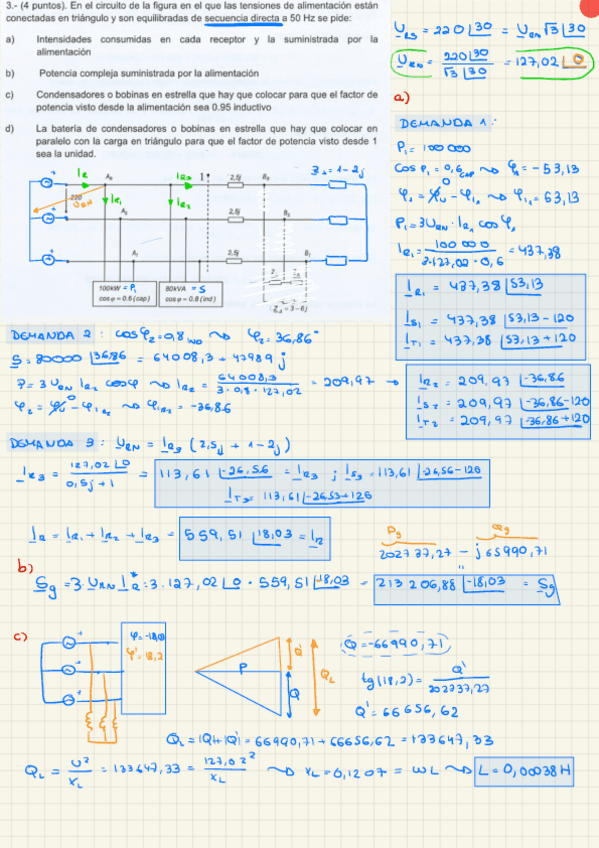 3.- (4 puntos). En el circuito de la figura en el que las tensiones de alimentación están
conectadas en triángulo y son equilibradas de secuencia directa a 50 Hz se pide:
a) Intensidades consumidas en cada receptor y la suministrada por la
alimentación
b) Potencia compleja suministrada por la alimentación
c) Condensadores o bobinas en estrella que hay que colocar para que el factor de
potencia visto desde la alimentación sea 0.95 inductivo
d) La batería de condensadores o bobinas en estrella que hay que colocar en
paralelo con la carga en triángulo para que el factor de potencia visto desde 1
sea la unidad.
U_RS = 220 ⌊30 = U_RN √3 ⌊30
U_RN = 220⌊30 / √3 ⌊30 = 127,02 ⌊0
a)
DEMANDA 1:
P₁ = 100 000
cos φ₁ = 0,6 cap ⇝ φ₁ = -53,13
P₁ = 3 U_RN · I_R₁ cos φ₁
I_R₁ = 100 000 / 3·127,02·0,6 = 437,38
I_R₁ = 437,38 ⌊53,13
I_S₁ = 437,38 ⌊53,13 - 120
I_T₁ = 437,38 ⌊53,13 + 120
I_R
I_R₃
1
2,5j
Z_Δ = 1 - 2j
220
U_RN
I_R₁
I_R₂
2,5j
2,5j
100kW = P₁
cos φ = 0.6 (cap)
80kVA = S
cos φ = 0.8 (ind)
DEMANDA 2: cos φ₂ = 0,8 IND ⇝ φ₂ = 36,86°
S = 80000 ⌊36,86 = 64008,3 + 47989 j
P = 3 U_RN I_R₂ cos φ ⇝ I_R₂ = 64008,3 / 3·0,8·127,02 = 209,97
⇝ φ_IR₂ = -36,86
I_R₂ = 209,97 ⌊-36,86
I_S₂ = 209,97 ⌊-36,86-120
I_T₂ = 209,97 ⌊-36,86+120
DEMANDA 3: U_RN = I_R₃ (2,5j + 1 - 2j)
I_R₃ = 127,02⌊0 / 0,5j + 1 = 113,61 ⌊-26,56 = I_R₃ ; I_S₃ = 113,61 ⌊-26,56-120
I_T₃ = 113,61 ⌊-26,53+120
I_R = I_R₁ + I_R₂ + I_R₃ = 559,51 ⌊18,03 = I_R
Pg Qg
202737,27 - j 65990,71
b)
Sg = 3·U_RN I_R* = 3·127,02⌊0 · 559,51⌊18,03 = 213 206,88 ⌊-18,03 = Sg
c)
φ' = 18,2
P
Q'
Q
Q_L
Q = -66990,71
tg(18,2) = Q' / 202737,27
Q' = 66656,62
Q_L = |Q|+|Q'| = 66990,71 + 66656,62 = 133647,33
Q_L = U² / X_L = 133647,33 = 127,02² / X_L ⇝ X_L = 0,1207 = ωL ⇝ L = 0,00038H